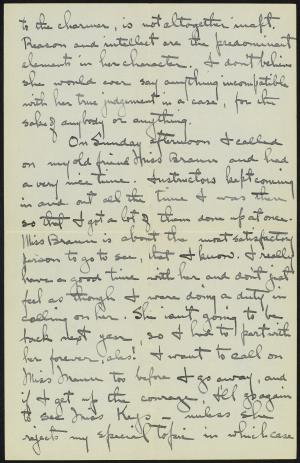 to the charmer, is not altogether inapt.
Reason and intellect are the predominant
element in her character. I don't believe
she would ever say anything incompatible
with her true judgement in a case, for the
sake of anybody or anything.
On Sunday afternoon I called
on my old friend Miss Braun and had
a very nice time. Instructors kept coming
in and out all the time I was there
so that I got a lot of them done up at once.
Miss Braun is about the most satisfactory
person to go to see, that I know. I really
have a good time with her and don't just
feel as though I were doing a duty in
calling on her. She isn't going to be
back next year, so I had to part with
her forever, alas! I want to call on
Miss too before I go away, and
if I get up the courage, I'll go again
to see Miss Keys – unless she
rejects my special topic in which case